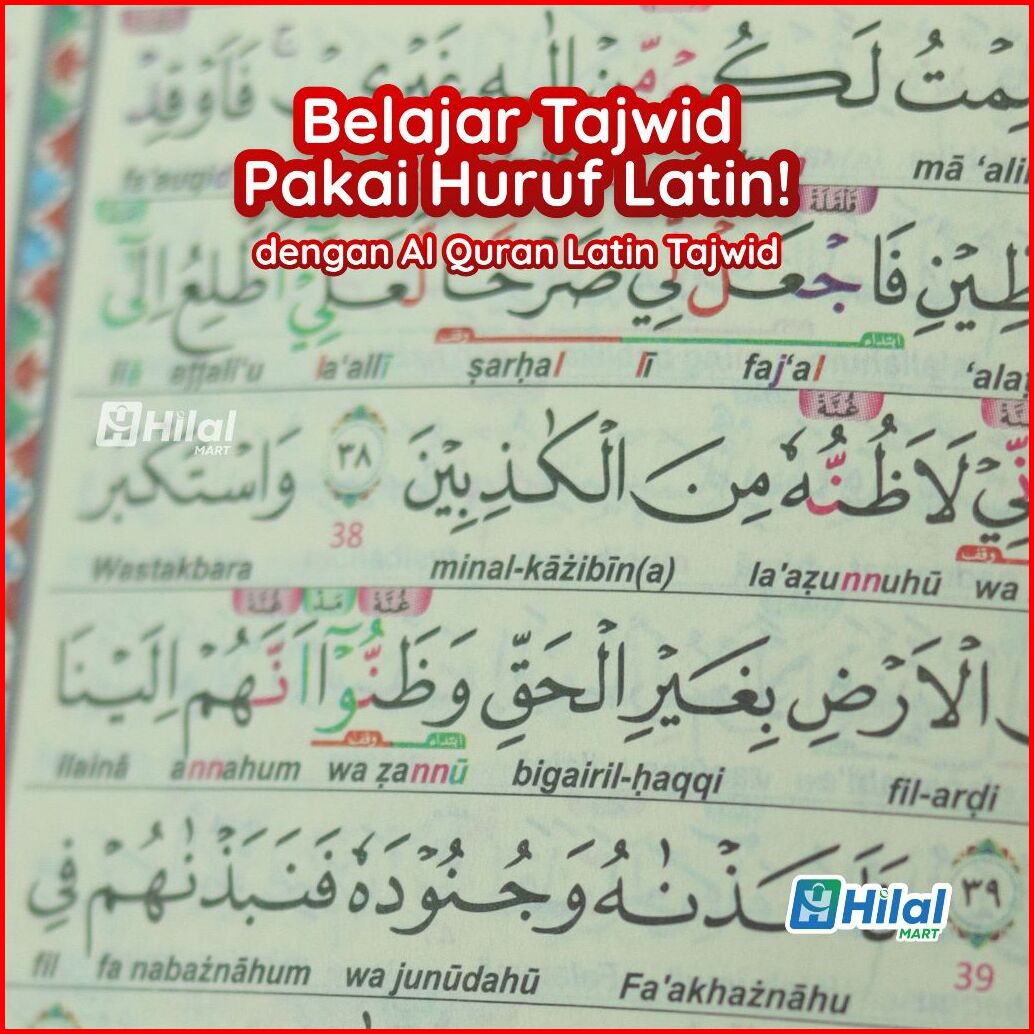 Belajar Tajwid
Pakai Huruf Latin!
dengan Al Quran Latin Tajwid
مِّنْ اِلٰهٍ غَيْرِيْۚ فَاَوْقِدْ
mā ‘ali
غُنَّة
فَاجْعَلْ لِّيْ صَرْحًا لَّعَلِّيْٓ اَطَّلِعُ اِلٰٓى
وقف ابتداء
‘ala faj‘al lī ṣarḥal la'allī aṭṭali'u ilā
غُنَّة غُنَّة
لَاَظُنُّهٗ مِنَ الْكٰذِبِيْنَ ٣٨ وَاسْتَكْبَرَ
وقف
38
wa la'aẓunnuhū minal-kāżibīn(a) Wastakbara
غُنَّة مَدّ غُنَّة
الْاَرْضِ بِغَيْرِ الْحَقِّ وَظَنُّوْٓا اَنَّهُمْ اِلَيْنَا
ابتداء وقف
fil-arḍi bigairil-ḥaqqi wa ẓannū annahum ilainā
٣٩ وَجُنُوْدَهٗ فَنَبَذْنٰهُمْ فِى
39
Fa'akhażnāhu wa junūdahū fa nabażnāhum fil
Hilal
MART
Hilal
MART